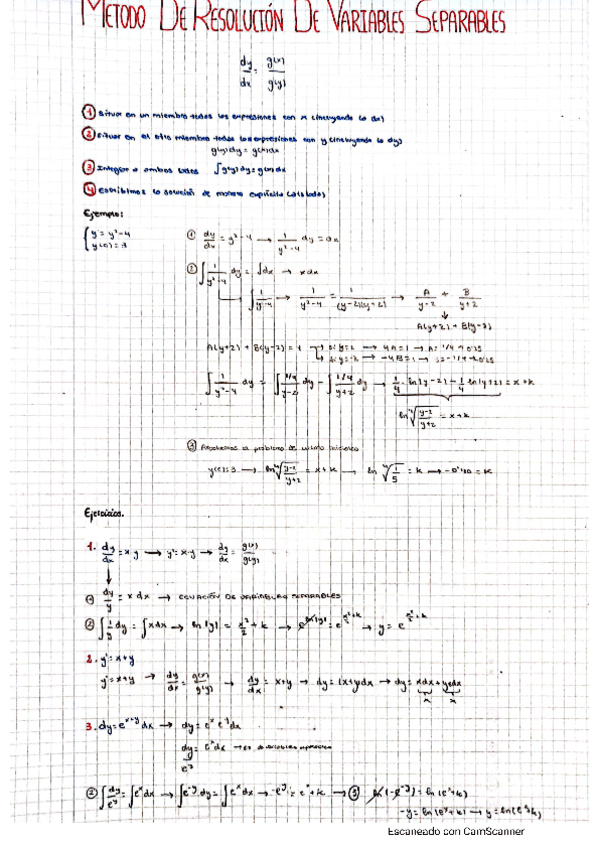 METODO DE RESOLUCIÓN DE VARIABLES SEPARABLES
dy/dx = g(x)/g(y)
① Situar en un miembro todas las expresiones con x (incluyendo la dx)
② Situar en el otro miembro todas las expresiones con y (incluyendo la dy)
g(y)dy = g(x)dx
③ Integrar a ambos lados ∫g(y)dy = g(x)dx
④ Escribimos la solución de manera explícita
Ejemplo:
{ y' = y²-4
y(0) = 3
① dy/dx = y²-4 → 1/y²-4 dy = dx
② ∫ 1/y²-4 dy = ∫dx → xdx
→ 1/y²-4 = 1/(y-2)(y+2) → A/y-2 + B/y+2
A(y+2) + B(y-2)
A(y+2) + B(y-2) = 1
→ 4A=1 → A= 1/4
→ -4B=1
∫ 1/y²-4 dy = ∫ 1/4/y-2 dy - ∫ 1/4/y+2 dy → 1/4 · ln|y-2| - 1/4 ln|y+2| = x+k
ln ⁴√y-2/y+2 = x+k
③ Resolvemos el problema de
y(0)=3 → ln ⁴√y-2/y+2 = x+k → ln ⁴√1/5 = k → -0'40 = k
Ejercicios.
1. dy/dx = x·y → y' = x·y → dy/dx = g(x)/g(y)
① dy/y = x dx → ECUACIÓN DE VARIABLES SEPARABLES
② ∫ 1/y dy = ∫xdx → ln|y| = x²/2 + k → e^ln|y| = e^x²/2+k → y = e^x²/2+k
2. y' = x+y
y' = x+y → dy/dx = g(x)/g(y) → dy/dx = x+y → dy = (x+y)dx → dy = xdx + ydx
x x
3. dy = e^x+y dx → dy = e^x e^y dx
dy/e^y = e^x dx → es de variables separables
② ∫ dy/e^y = ∫e^x dx → ∫e^-y dy = ∫e^x dx → -e^-y = e^x + k → ③ ln(-e^-y) = ln(e^x+k)
-y = ln(e^x+k) → y = ln(e^x+k)
Escaneado con CamScanner